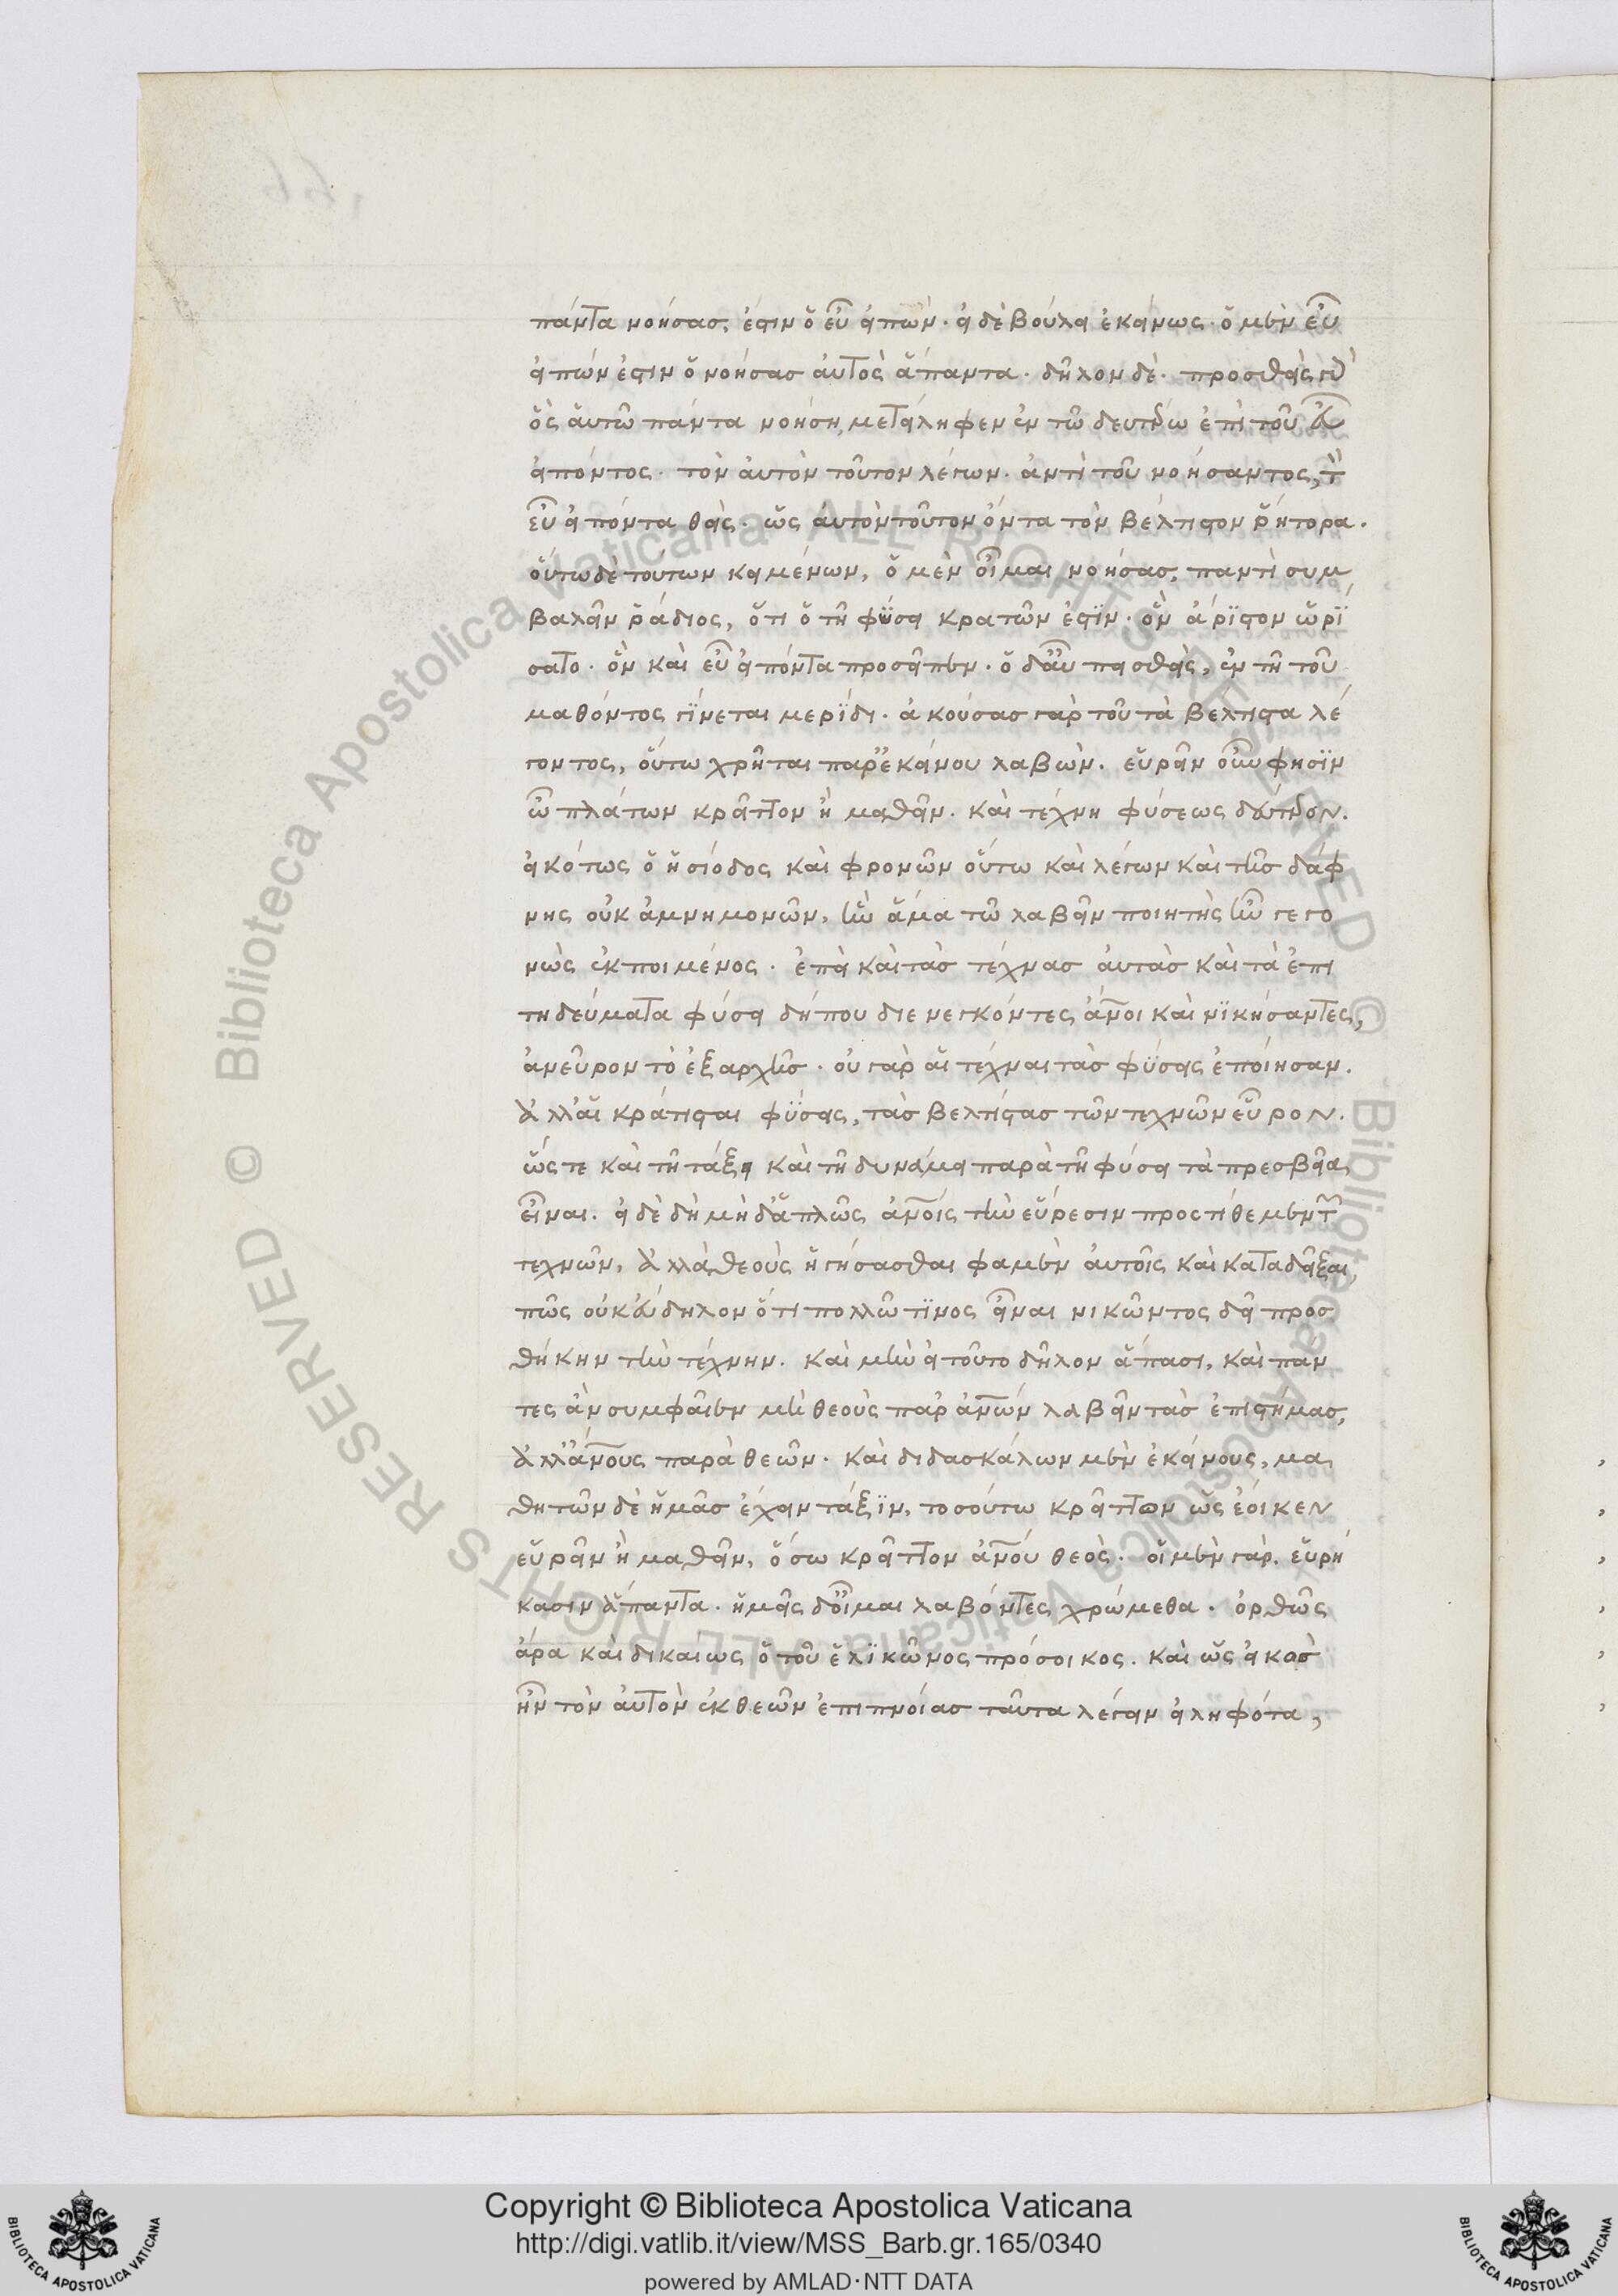 πάντα νοήσας, ἐστιν ὁ εὖ εἰπών. εἰ δὲ βούλει ἐκείνως. ὁ μὲν εὖ
εἰπών ἐστιν ὁ νοήσας αὐτὸς ἅπαντα. δῆλον δέ. προσθεὶς γὰρ
ὃς αὑτῷ πάντα νοήσῃ, μετείληφεν ἐν τῷ δευτέρῳ ἐπὶ τοῦ εὖ
εἰπόντος. τὸν αὐτὸν τοῦτον λέγων. ἀντὶ τοῦ νοήσαντος, τὸν
εὖ εἰπόντα θεὶς. ὡς αὐτὸν τοῦτον ὄντα τὸν βέλτιστον ῥήτορα.
οὕτω δὲ τούτων κειμένων, ὁ μὲν οἶμαι νοήσας, παντὶ συμ
βαλεῖν ῥάδιος, ὅτι ὁ τῇ φύσει κρατῶν ἐστίν. ὃν ἄριστον ὡρί
σατο. ὃν καὶ εὖ εἰπόντα προσεῖπεν. ὁ δ' αὖ πεισθεὶς, ἐν τῇ τοῦ
μαθόντος γίνεται μερίδι. ἀκούσας γὰρ τοῦ τὰ βέλτιστα λέ
γοντος, οὕτω χρῆται παρ' ἐκείνου λαβών. εὑρεῖν οὖν φησὶν
ὦ πλάτων κρεῖττον ἢ μαθεῖν. καὶ τέχνη φύσεως δεύτερον.
εἰκότως ὁ ἡσίοδος καὶ φρονῶν οὕτω καὶ λέγων καὶ τῆς δάφ
νης οὐκ ἀμνημονῶν, ἣν ἅμα τῷ λαβεῖν ποιητὴς ἦν γεγο
νὼς ἐκ ποιμένος. ἐπεὶ καὶ τὰς τέχνας αὐτὰς καὶ τὰ ἐπι
τηδεύματα φύσει δήπου διενεγκόντες ἄνθρωποι καὶ νικήσαντες,
ἀνεῦρον τὸ ἐξ αρχῆς. οὐ γὰρ αἱ τέχναι τὰς φύσεις ἐποίησαν.
ἀλλ' αἱ κράτισται φύσεις, τὰς βελτίστας τῶν τεχνῶν εὗρον.
ὥστε καὶ τῇ τάξει καὶ τῇ δυνάμει παρὰ τῇ φύσει τὰ πρεσβεῖα
εἶναι. εἰ δὲ δὴ μὴ δ' ἁπλῶς ἀνθρώποις τὴν εὕρεσιν προστίθεμεν τῶν
τεχνῶν, ἀλλὰ θεοὺς ἡγήσασθαι φαμὲν αὐτοῖς καὶ καταδεῖξαι,
πῶς οὐκ εὔδηλον ὅτι πολλῷ τινος εἶναι νικῶντος δεῖ προσ
θήκην τὴν τέχνην. καὶ μὴν εἰ τοῦτο δῆλον ἅπασι, καὶ πάν
τες ἂν συμφαῖμεν μὴ θεοὺς παρ' ἀνθρώπων λαβεῖν τὰς ἐπιστήμας,
ἀλλ' ἀνθρώπους παρὰ θεῶν. καὶ διδασκάλων μὲν ἐκείνους, μα
θητῶν δὲ ἡμᾶς ἔχειν τάξιν, τοσούτω κρεῖττον ὡς ἔοικεν
εὑρεῖν ἢ μαθεῖν, ὅσω κρεῖττον ἀνθρώπου θεός. οἱ μὲν γὰρ εὑρή
κασιν ἅπαντα. ἡμεῖς δ' οἶμαι λαβόντες χρώμεθα. ὀρθῶς
ἄρα καὶ δικαίως ὁ τοῦ ἑλικῶνος πρόσοικος. καὶ ὡς εἰκὸς
ἦν τὸν αὐτὸν ἐκ θεῶν ἐπιπνοίας ταῦτα λέγειν εἰληφότα,
Copyright © Biblioteca Apostolica Vaticana
http://digi.vatlib.it/view/MSS_Barb.gr.165/0340
powered by AMLAD·NTT DATA